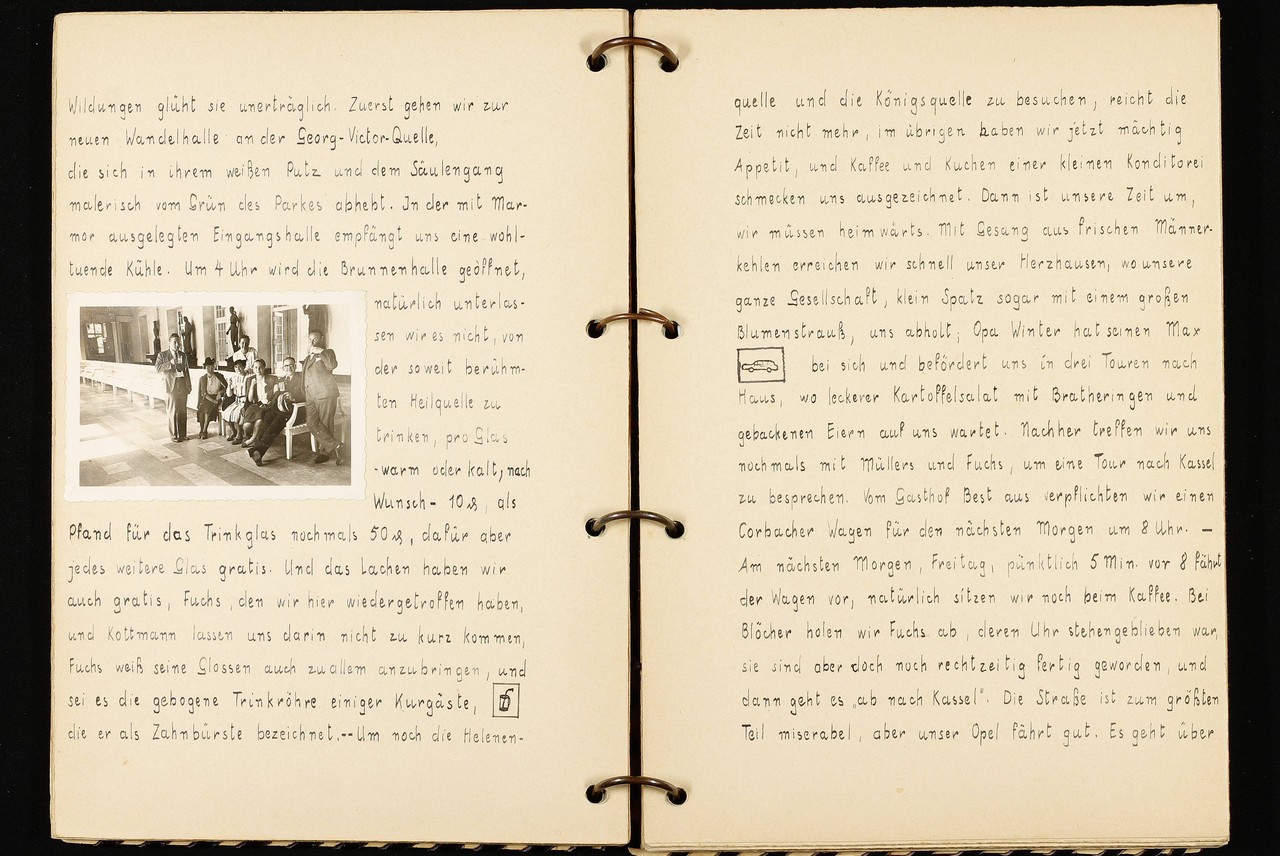 Wildungen glüht sie unerträglich. Zuerst gehen wir zur
neuen Wandelhalle an der Georg-Victor-Quelle,
die sich in ihrem weißen Putz und dem Säulengang
malerisch vom Grün des Parkes abhebt. In der mit Mar-
mor ausgelegten Eingangshalle empfängt uns eine wohl-
tuende Kühle. Um 4 Uhr wird die Brunnenhalle geöffnet,
natürlich unterlas-
sen wir es nicht, von
der soweit berühm-
ten Heilquelle zu
trinken, pro Glas
-warm oder kalt, nach
Wunsch- 10 ₰, als
Pfand für das Trinkglas nochmals 50 ₰, dafür aber
jedes weitere Glas gratis. Und das Lachen haben wir
auch gratis, Fuchs, den wir hier wiedergetroffen haben,
und Kottmann lassen uns darin nicht zu kurz kommen,
Fuchs weiß seine Glossen auch zu allem anzubringen, und
sei es die gebogene Trinkröhre einiger Kurgäste,
die er als Zahnbürste bezeichnet.--Um noch die Helenen-
quelle und die Königsquelle zu besuchen, reicht die
Zeit nicht mehr, im übrigen haben wir jetzt mächtig
Appetit, und Kaffee und Kuchen einer kleinen Konditorei
schmecken uns ausgezeichnet. Dann ist unsere Zeit um,
wir müssen heimwärts. Mit Gesang aus frischen Männer-
kehlen erreichen wir schnell unser Herzhausen, wo unsere
ganze Gesellschaft, klein Spatz sogar mit einem großen
Blumenstrauß, uns abholt; Opa Winter hat seinen Max
bei sich und befördert uns in drei Touren nach
Haus, wo leckerer Kartoffelsalat mit Bratheringen und
gebackenen Eiern auf uns wartet. Nachher treffen wir uns
nochmals mit Müllers und Fuchs, um eine Tour nach Kassel
zu besprechen. Vom Gasthof Best aus verpflichten wir einen
Corbacher Wagen für den nächsten Morgen um 8 Uhr. —
Am nächsten Morgen, Freitag, pünktlich 5 Min. vor 8 fährt
der Wagen vor, natürlich sitzen wir noch beim Kaffee. Bei
Blöcher holen wir Fuchs ab, deren Uhr stehengeblieben war,
sie sind aber doch noch rechtzeitig fertig geworden, und
dann geht es „ab nach Kassel". Die Straße ist zum größten
Teil miserabel, aber unser Opel fährt gut. Es geht über